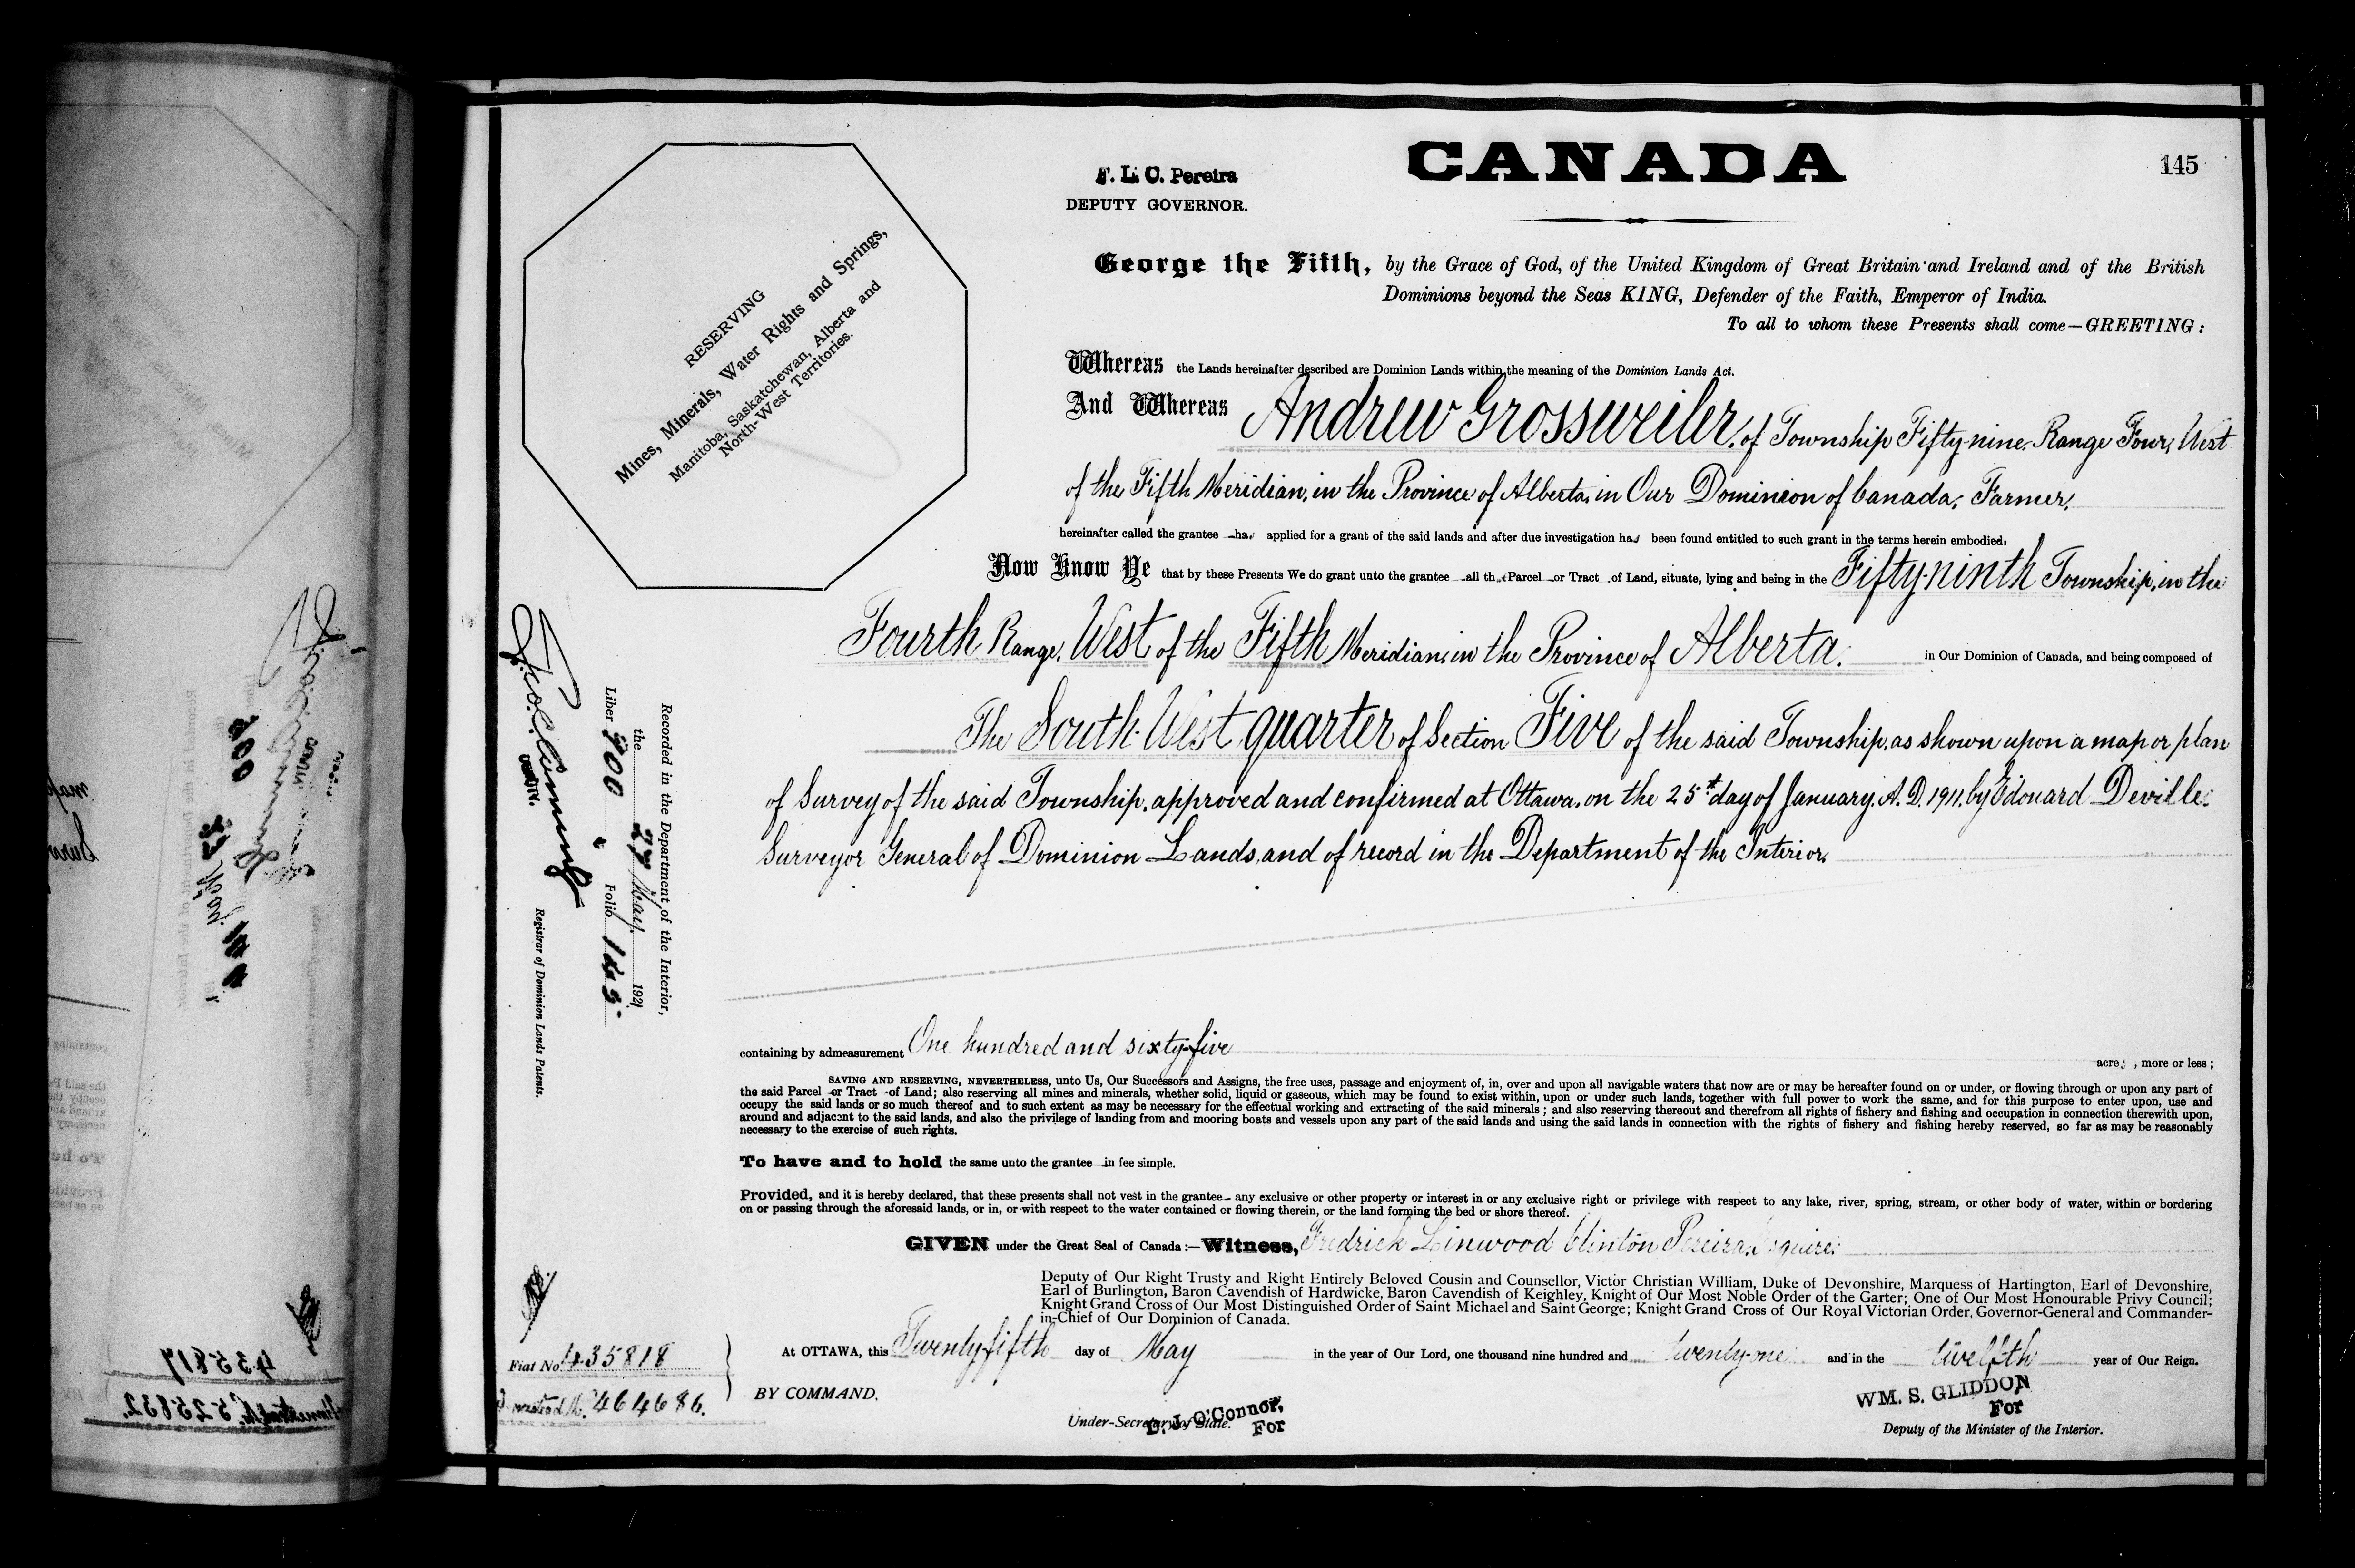 CANADA
145
F. L. C. Pereira
DEPUTY GOVERNOR.
George the Fifth, by the Grace of God, of the United Kingdom of Great Britain and Ireland and of the British
Dominions beyond the Seas KING, Defender of the Faith, Emperor of India.
To all to whom these Presents shall come—GREETING:
RESERVING
Mines, Minerals, Water Rights and Springs,
Manitoba, Saskatchewan, Alberta and
North-West Territories.
Whereas the Lands hereinafter described are Dominion Lands within the meaning of the Dominion Lands Act.
And Whereas Andrew Grossweiler, of Township Fifty-nine, Range Four, West
of the Fifth Meridian, in the Province of Alberta, in Our Dominion of Canada, Farmer,
hereinafter called the grantee has applied for a grant of the said lands and after due investigation has been found entitled to such grant in the terms herein embodied.
Now Know Ye that by these Presents We do grant unto the grantee all that Parcel or Tract of Land, situate, lying and being in the Fifty-ninth Township, in the
Fourth Range, West of the Fifth Meridian, in the Province of Alberta, in Our Dominion of Canada, and being composed of
The South-West quarter of Section Five of the said Township, as shown upon a map or plan
of Survey of the said Township, approved and confirmed at Ottawa, on the 25th day of January, A.D. 1911, by Edouard Deville,
Surveyor General of Dominion Lands, and of record in the Department of the Interior.
containing by admeasurement One hundred and sixty-five acres, more or less;
SAVING AND RESERVING, NEVERTHELESS, unto Us, Our Successors and Assigns, the free uses, passage and enjoyment of, in, over and upon all navigable waters that now are or may be hereafter found on or under, or flowing through or upon any part of
the said Parcel or Tract of Land; also reserving all mines and minerals, whether solid, liquid or gaseous, which may be found to exist within, upon or under such lands, together with full power to work the same, and for this purpose to enter upon, use and
occupy the said lands or so much thereof and to such extent as may be necessary for the effectual working and extracting of the said minerals; and also reserving thereout and therefrom all rights of fishery and fishing and occupation in connection therewith upon,
around and adjacent to the said lands, and also the privilege of landing from and mooring boats and vessels upon any part of the said lands and using the said lands in connection with the rights of fishery and fishing hereby reserved, so far as may be reasonably
necessary to the exercise of such rights.
To have and to hold the same unto the grantee in fee simple.
Provided, and it is hereby declared, that these presents shall not vest in the grantee any exclusive or other property or interest in or any exclusive right or privilege with respect to any lake, river, spring, stream, or other body of water, within or bordering
on or passing through the aforesaid lands, or in, or with respect to the water contained or flowing therein, or the land forming the bed or shore thereof.
GIVEN under the Great Seal of Canada:—Witness, Fredrick Linwood Clinton Pereira, Esquire,
Deputy of Our Right Trusty and Right Entirely Beloved Cousin and Counsellor, Victor Christian William, Duke of Devonshire, Marquess of Hartington, Earl of Devonshire,
Earl of Burlington, Baron Cavendish of Hardwicke, Baron Cavendish of Keighley, Knight of Our Most Noble Order of the Garter; One of Our Most Honourable Privy Council;
Knight Grand Cross of Our Most Distinguished Order of Saint Michael and Saint George; Knight Grand Cross of Our Royal Victorian Order, Governor-General and Commander-
in-Chief of Our Dominion of Canada.
At OTTAWA, this Twenty-fifth day of May in the year of Our Lord, one thousand nine hundred and twenty-one and in the twelfth year of Our Reign.
BY COMMAND,
D. J. O'Connor,
For
Under-Secretary of State.
WM. S. GLIDDON
For
Deputy of the Minister of the Interior.
Recorded in the Department of the Interior,
the 27 May 1921
Liber 900 Folio 145
DEPUTY.
Registrar of Dominion Lands Patents.
Fiat No. 435818
464686.
435817
525832.